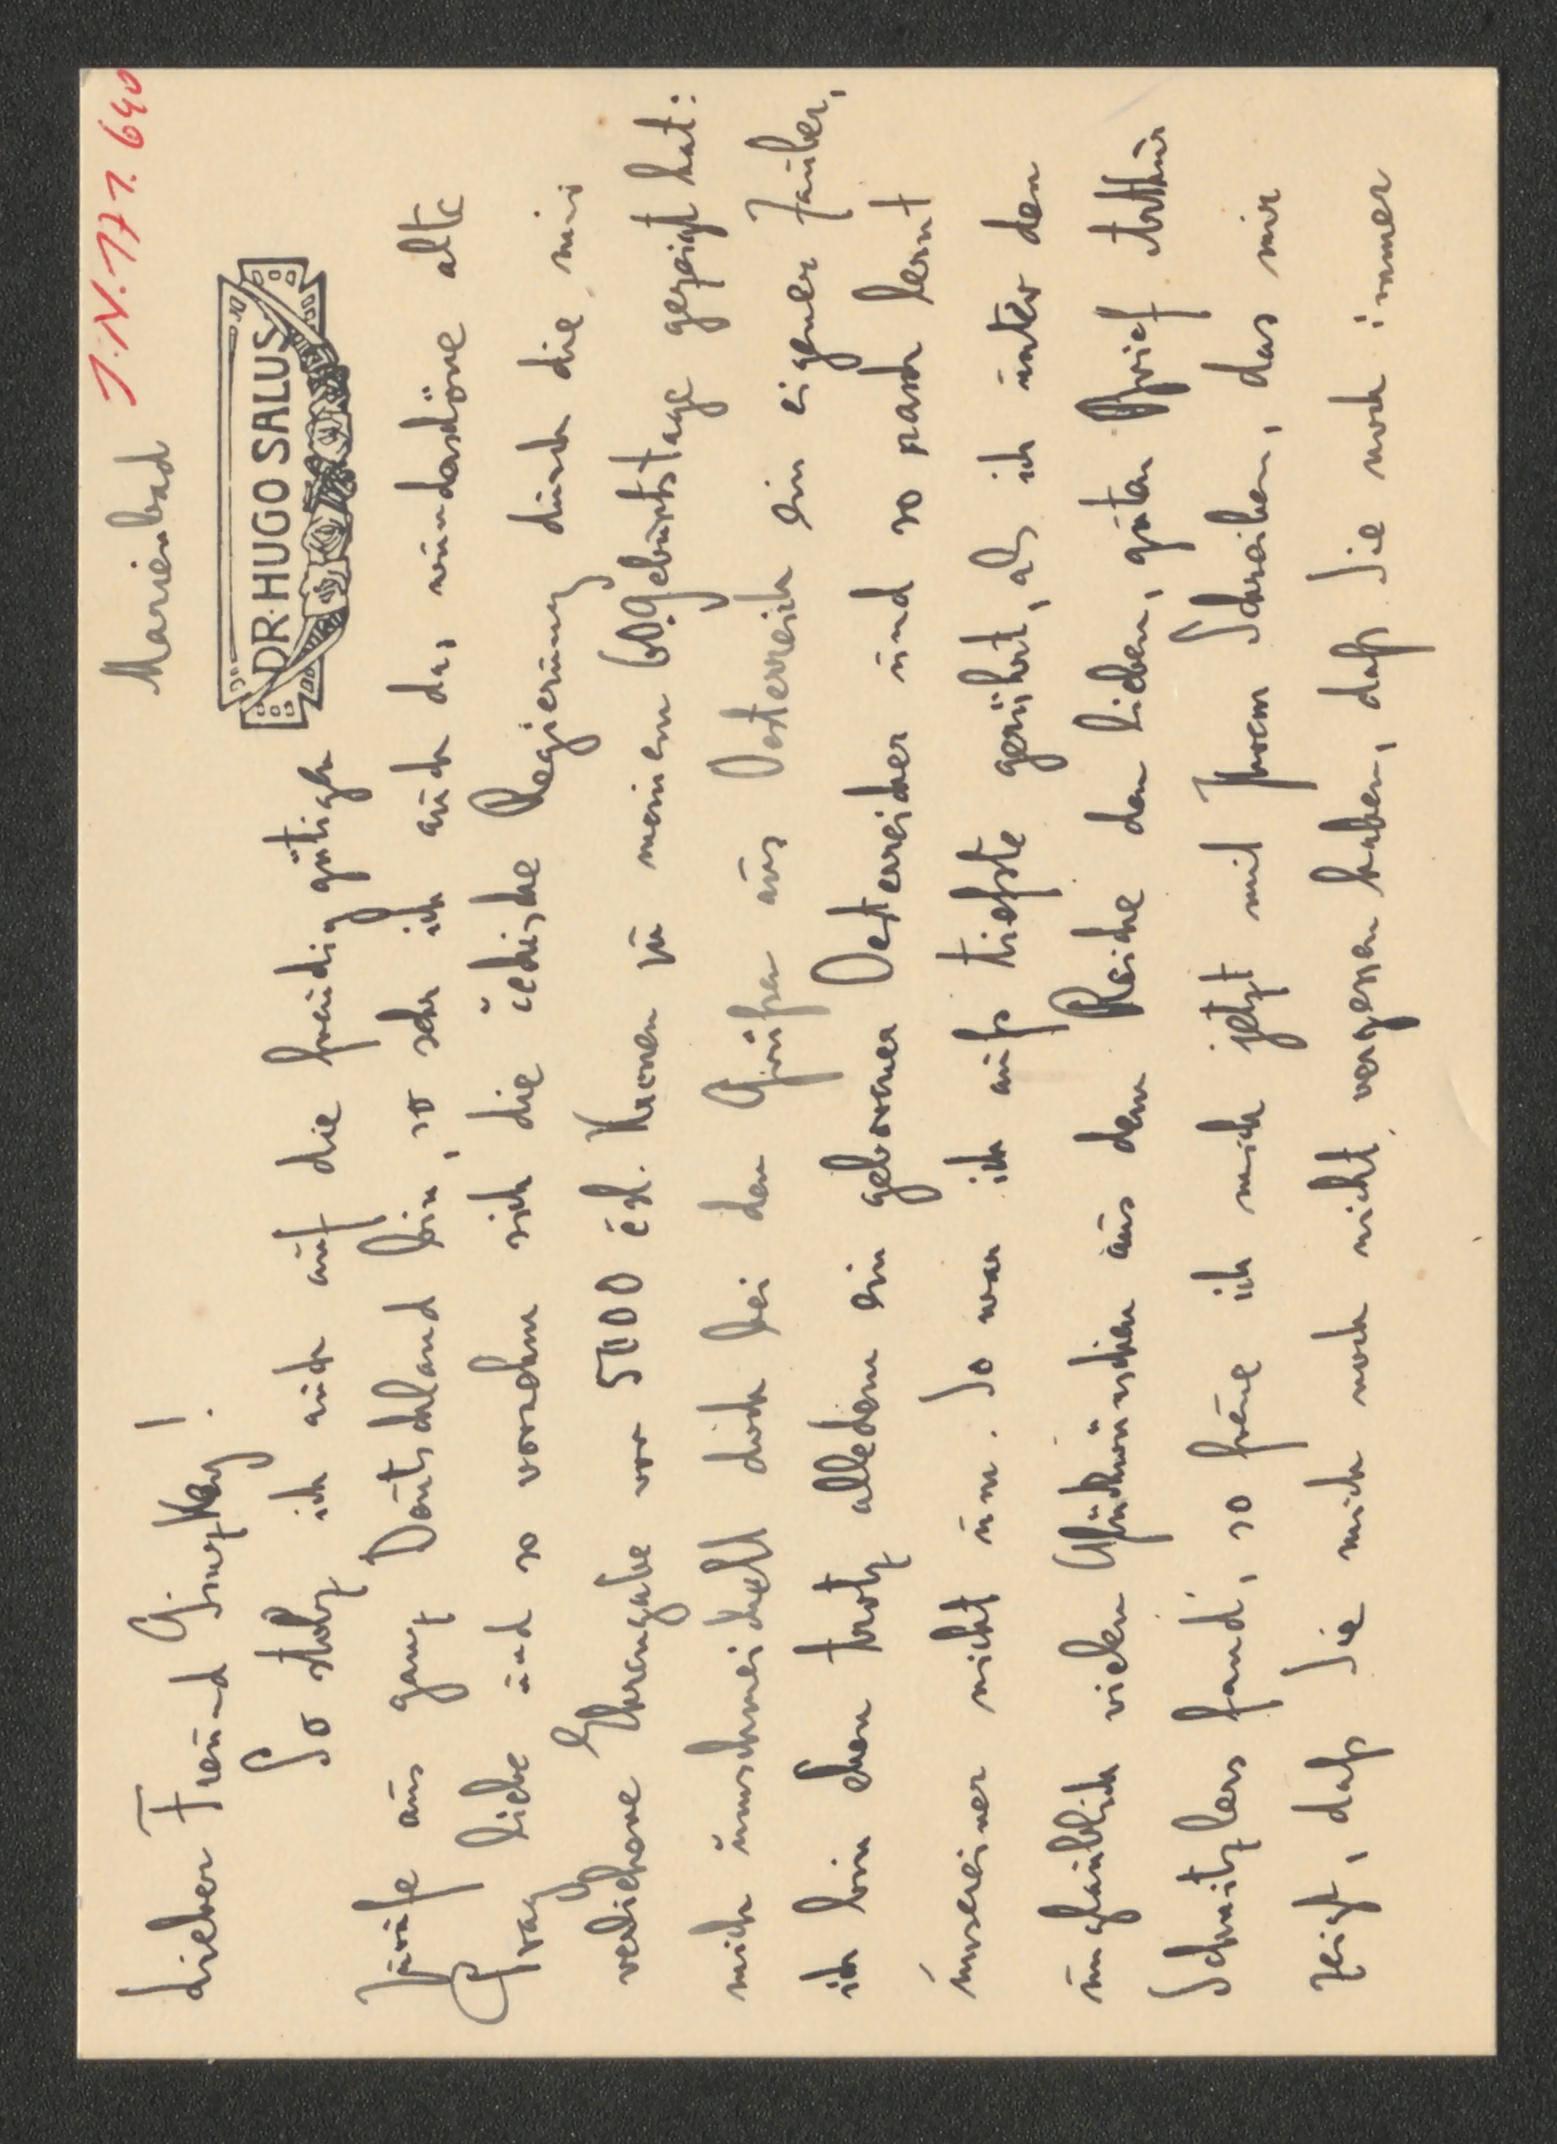 J.N. 177.640
Marienbad
DR·HUGO SALUS
Lieber Freund Ginzkey!
So stolz ich auch auf die freudig gütigen
Zurufe aus ganz Deutschland bin, so sehr ich auch das wunderschöne alte
Prag liebe und so vornehm sich die čechische Regierung durch die mir
verliehene Ehrengabe von 5000 čsl. Kronen zu meinem 60. Geburtstage gezeigt hat:
mich umschmeichelt doch bei den Grüßen aus Oesterreich ein eigener Zauber,
ich bin eben trotz alledem ein geborener Oesterreicher und so rasch lernt
unsereiner nicht um. So war ich aufs tiefste gerührt, als ich unter den
unglaublich vielen Glückwünschen aus dem Reiche den lieben, guten Brief Arthur
Schnitzlers fand, so freue ich mich jetzt mit Ihrem Schreiben, das mir
zeigt, daß Sie mich noch nicht vergessen haben, daß Sie noch immer